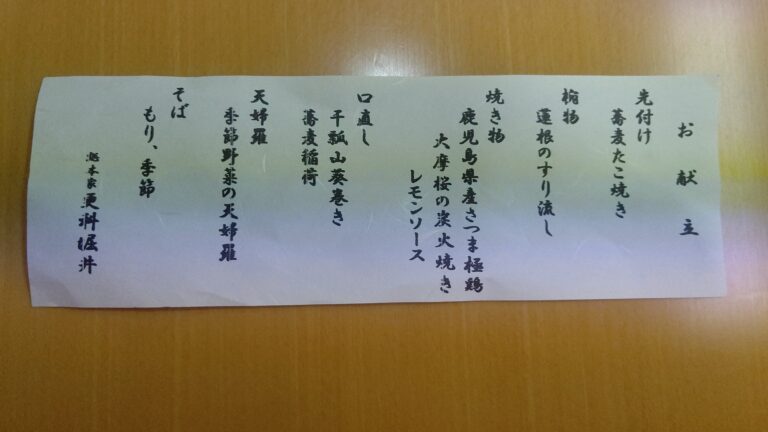 お献立
先付け
蕎麦たこ焼き
椀物
蓮根のすり流し
焼き物
鹿児島県産さつま極鶏
大摩桜の炭火焼き
レモンソース
口直し
干瓢山葵巻き
蕎麦稲荷
天婦羅
季節野菜の天婦羅
そば
もり、季節
総本家 更科堀井